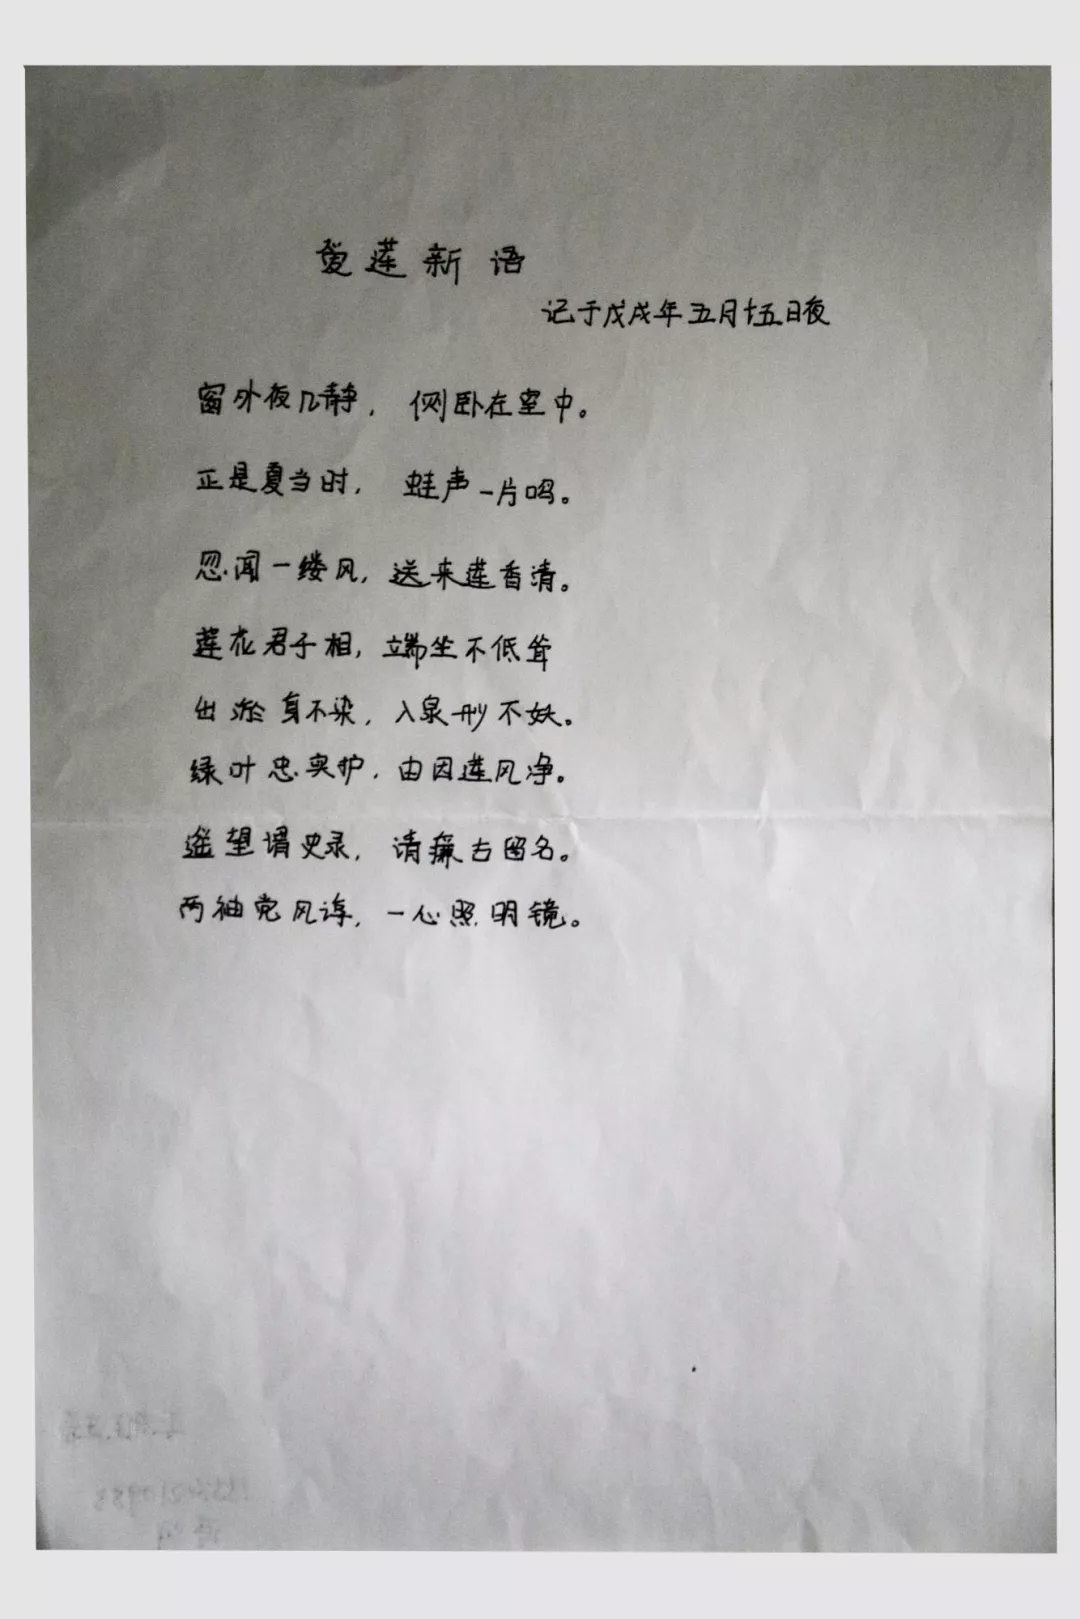 爱莲新语
记于戊戌年五月十五日夜
窗外夜几静，侧卧在室中。
正是夏当时，蛙声一片鸣。
忽闻一缕风，送来莲香清。
莲花君子相，端坐不低耸
出淤身不染，入泉形不妖。
绿叶忠实护，由因莲风净。
遥望谓史录，请廉古留名。
两袖党风淳，一心照明镜。